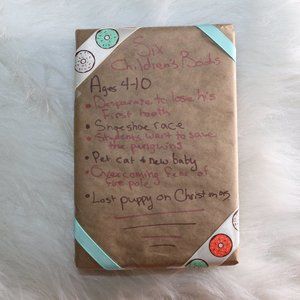 Six
Children's Books
Ages 4-10
• Desperate to lose his
first tooth
• Snoeshoe race
• Students want to save
the penguins
• Pet cat & new baby
• Overcoming fear of
fire pole
• Lost puppy on Christmas